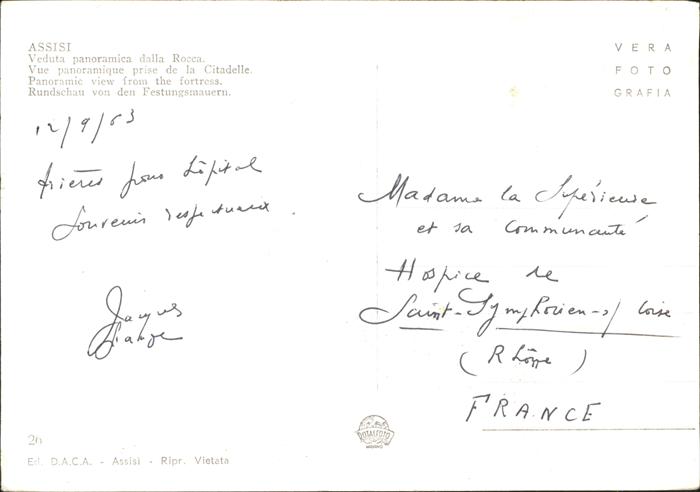 ASSISI
Veduta panoramica dalla Rocca.
Vue panoramique prise de la Citadelle.
Panoramic view from the fortress.
Rundschau von den Festungsmauern.
12/9/63
prières pour l'hôpital
Souvenirs respectueux.
Jacques
VERA
FOTO
GRAFIA
Madame la Supérieure
et sa Communauté
Hospice de
Saint-Symphorien-s/ Coise
(Rhône)
FRANCE
26
Ed. D.A.C.A. - Assisi - Ripr. Vietata